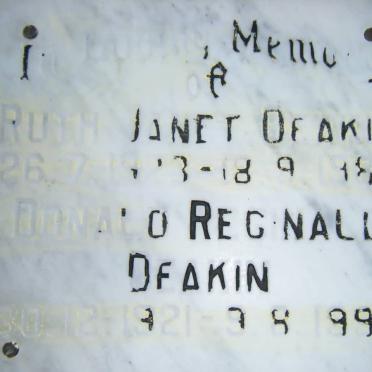 In Loving Memo
of
RUTH JANET DEAKI
26.7.1 3-18.9.198
DONALD REGINALD
DEAKIN
30.12.1921-3.8.199